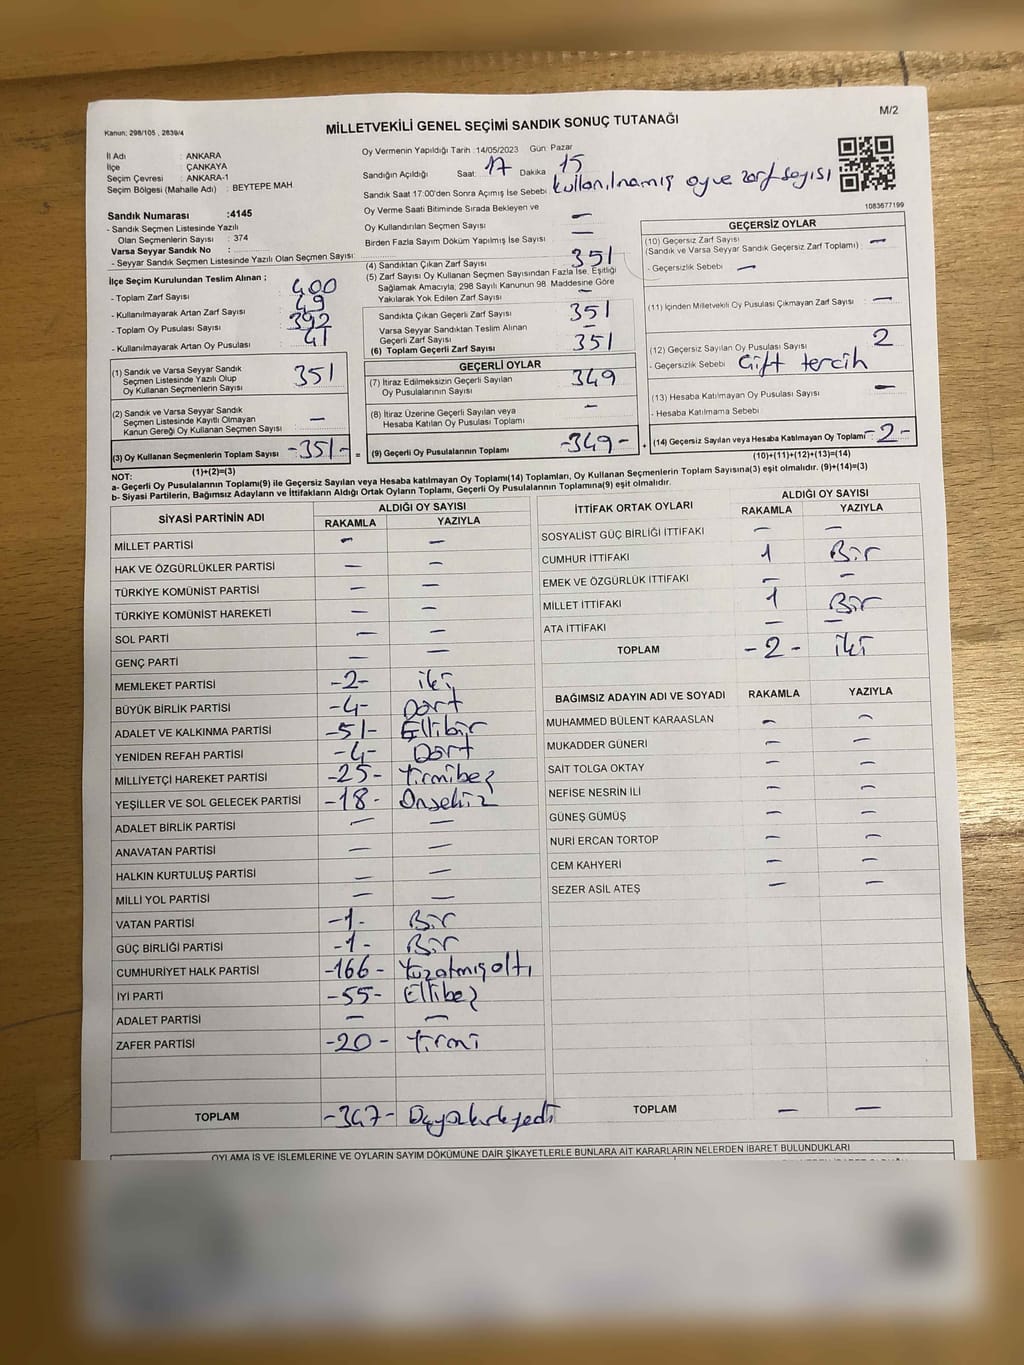 M/2
Kanun; 298/105 , 2839/4
MİLLETVEKİLİ GENEL SEÇİMİ SANDIK SONUÇ TUTANAĞI
İl Adı : ANKARA
İlçe : ÇANKAYA
Seçim Çevresi : ANKARA-1
Seçim Bölgesi (Mahalle Adı) : BEYTEPE MAH
Oy Vermenin Yapıldığı Tarih :14/05/2023 Gün: Pazar
Sandığın Açıldığı Saat: 17 Dakika 15
Sandık Saat 17:00'den Sonra Açmış İse Sebebi kullanılmamış oy ve zarf sayısı
1083677199
Sandık Numarası :4145
- Sandık Seçmen Listesinde Yazılı
Olan Seçmenlerin Sayısı : 374
Varsa Seyyar Sandık No :
- Seyyar Sandık Seçmen Listesinde Yazılı Olan Seçmen Sayısı:
Oy Verme Saati Bitiminde Sırada Bekleyen ve
Oy Kullandırılan Seçmen Sayısı –
Birden Fazla Sayım Döküm Yapılmış İse Sayısı –
İlçe Seçim Kurulundan Teslim Alınan ;
- Toplam Zarf Sayısı 400
- Kullanılmayarak Artan Zarf Sayısı 49
- Toplam Oy Pusulası Sayısı 392
- Kullanılmayarak Artan Oy Pusulası 41
(1) Sandık ve Varsa Seyyar Sandık
Seçmen Listesinde Yazılı Olup
Oy Kullanan Seçmenlerin Sayısı 351
(2) Sandık ve Varsa Seyyar Sandık
Seçmen Listesinde Kayıtlı Olmayan
Kanun Gereği Oy Kullanan Seçmen Sayısı –
(3) Oy Kullanan Seçmenlerin Toplam Sayısı -351-
(1)+(2)=(3)
(4) Sandıktan Çıkan Zarf Sayısı 351
(5) Zarf Sayısı Oy Kullanan Seçmen Sayısından Fazla İse, Eşitliği
Sağlamak Amacıyla; 298 Sayılı Kanunun 98. Maddesine Göre
Yakılarak Yok Edilen Zarf Sayısı –
Sandıkta Çıkan Geçerli Zarf Sayısı 351
Varsa Seyyar Sandıktan Teslim Alınan
Geçerli Zarf Sayısı –
(6) Toplam Geçerli Zarf Sayısı 351
GEÇERLİ OYLAR
(7) İtiraz Edilmeksizin Geçerli Sayılan
Oy Pusulalarının Sayısı 349
(8) İtiraz Üzerine Geçerli Sayılan veya
Hesaba Katılan Oy Pusulası Toplamı –
= (9) Geçerli Oy Pusulalarının Toplamı -349- +
GEÇERSİZ OYLAR
(10) Geçersiz Zarf Sayısı
(Sandık ve Varsa Seyyar Sandık Geçersiz Zarf Toplamı) –
- Geçersizlik Sebebi –
(11) İçinden Milletvekili Oy Pusulası Çıkmayan Zarf Sayısı –
(12) Geçersiz Sayılan Oy Pusulası Sayısı 2
- Geçersizlik Sebebi Çift tercih
(13) Hesaba Katılmayan Oy Pusulası Sayısı –
- Hesaba Katılmama Sebebi
(14) Geçersiz Sayılan veya Hesaba Katılmayan Oy Toplamı -2-
(10)+(11)+(12)+(13)=(14)
NOT:
a- Geçerli Oy Pusulalarının Toplamı(9) ile Geçersiz Sayılan veya Hesaba katılmayan Oy Toplamı(14) Toplamları, Oy Kullanan Seçmenlerin Toplam Sayısına(3) eşit olmalıdır. (9)+(14)=(3)
b- Siyasi Partilerin, Bağımsız Adayların ve İttifakların Aldığı Ortak Oyların Toplamı, Geçerli Oy Pusulalarının Toplamına(9) eşit olmalıdır.
SİYASİ PARTİNİN ADI ALDIĞI OY SAYISI
RAKAMLA YAZIYLA
MİLLET PARTİSİ – –
HAK VE ÖZGÜRLÜKLER PARTİSİ – –
TÜRKİYE KOMÜNİST PARTİSİ – –
TÜRKİYE KOMÜNİST HAREKETİ – –
SOL PARTİ – –
GENÇ PARTİ – –
MEMLEKET PARTİSİ -2- iki
BÜYÜK BİRLİK PARTİSİ -4- Dört
ADALET VE KALKINMA PARTİSİ -51- Ellibir
YENİDEN REFAH PARTİSİ -4- Dört
MİLLİYETÇİ HAREKET PARTİSİ -25- Yirmibeş
YEŞİLLER VE SOL GELECEK PARTİSİ -18- Onsekiz
ADALET BİRLİK PARTİSİ – –
ANAVATAN PARTİSİ – –
HALKIN KURTULUŞ PARTİSİ – –
MİLLİ YOL PARTİSİ – –
VATAN PARTİSİ -1- Bir
GÜÇ BİRLİĞİ PARTİSİ -1- Bir
CUMHURİYET HALK PARTİSİ -166- Yüzatmışaltı
İYİ PARTİ -55- Ellibeş
ADALET PARTİSİ – –
ZAFER PARTİSİ -20- Yirmi
TOPLAM -347- Üçyüzkırkyedi
İTTİFAK ORTAK OYLARI ALDIĞI OY SAYISI
RAKAMLA YAZIYLA
SOSYALİST GÜÇ BİRLİĞİ İTTİFAKI – –
CUMHUR İTTİFAKI 1 Bir
EMEK VE ÖZGÜRLÜK İTTİFAKI – –
MİLLET İTTİFAKI 1 Bir
ATA İTTİFAKI – –
TOPLAM -2- iki
BAĞIMSIZ ADAYIN ADI VE SOYADI RAKAMLA YAZIYLA
MUHAMMED BÜLENT KARAASLAN – –
MUKADDER GÜNERİ – –
SAİT TOLGA OKTAY – –
NEFİSE NESRİN İLİ – –
GÜNEŞ GÜMÜŞ – –
NURİ ERCAN TORTOP – –
CEM KAHYERİ – –
SEZER ASİL ATEŞ – –
TOPLAM – –
OYLAMA İŞ VE İŞLEMLERİNE VE OYLARIN SAYIM DÖKÜMÜNE DAİR ŞİKAYETLERLE BUNLARA AİT KARARLARIN NELERDEN İBARET BULUNDUKLARI